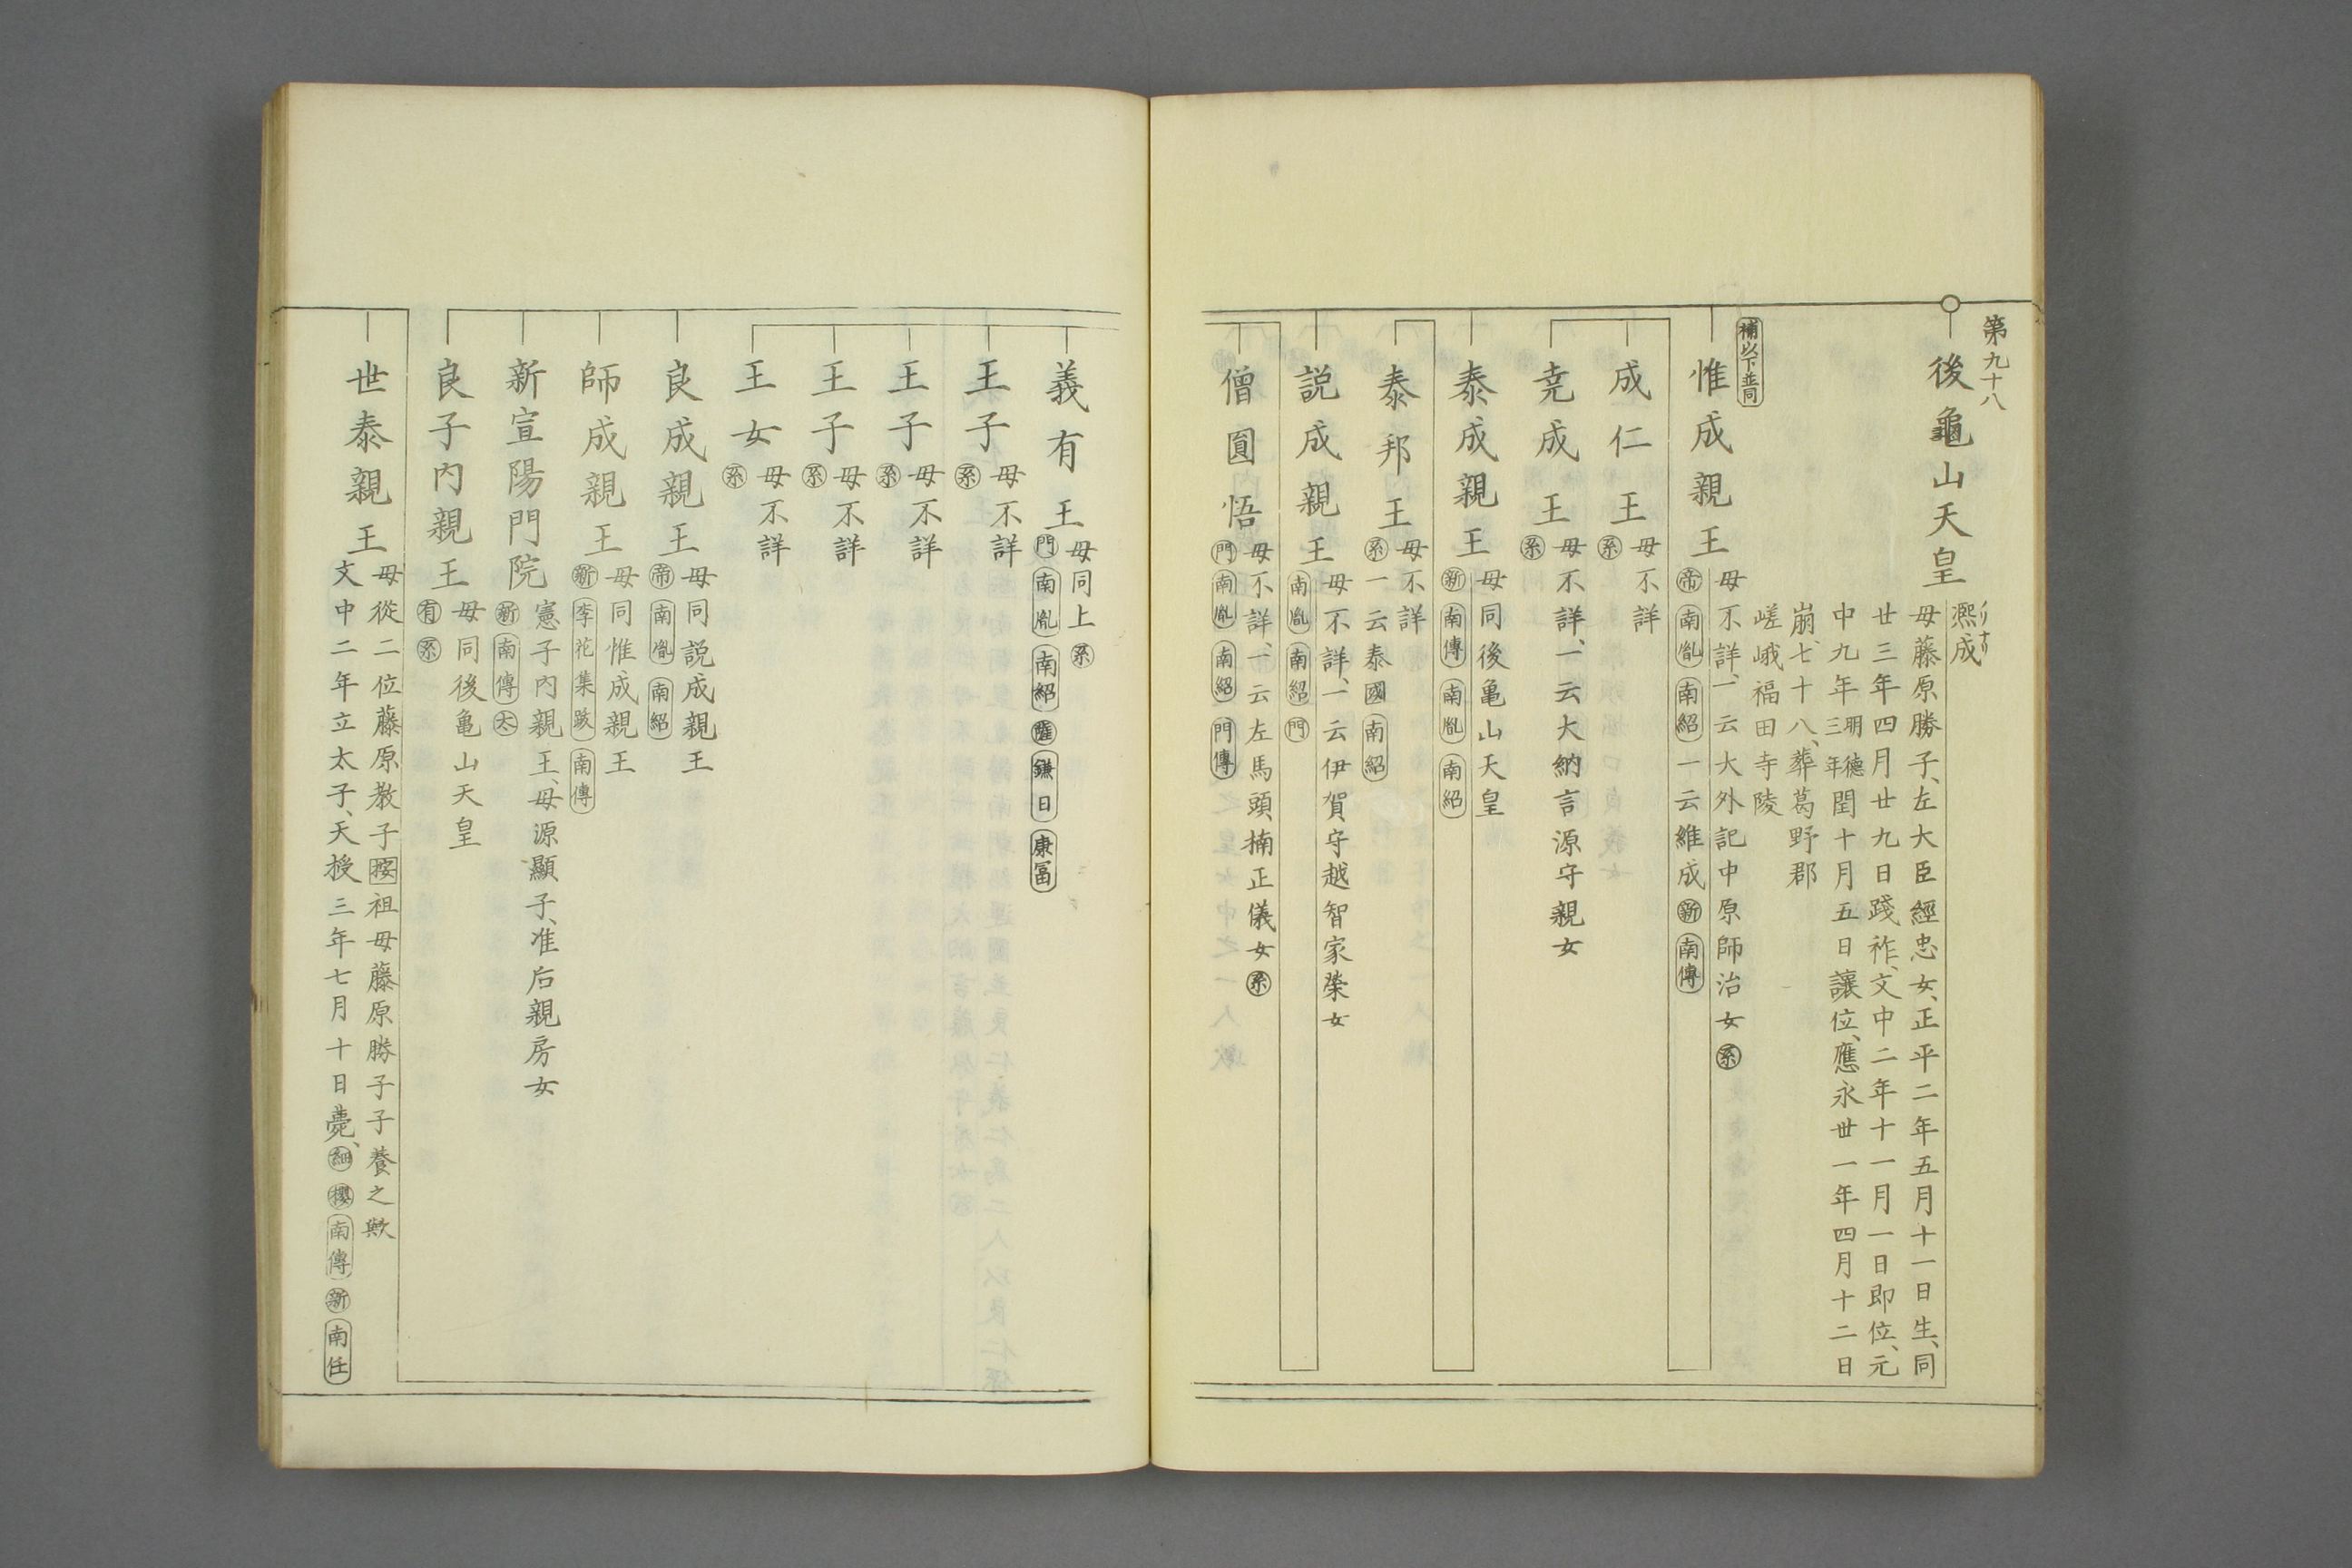 第九十八
後龜山天皇
熈成
母藤原勝子、左大臣經忠女、正平二年五月十一日生、同
廿三年四月廿九日踐祚、文中二年十一月一日即位、元
中九年明德三年閏十月五日讓位、應永卅一年四月十二日
崩、七十八、葬葛野郡
嵯峨福田寺陵
補以下並同
惟成親王
母不詳、一云大外記中原師治女 系
帝 南胤 南紹 一云維成 新 南傳
成仁王
母不詳
系
尭成王
母不詳、一云大納言源守親女
系
泰成親王
母同後亀山天皇
新 南傳 南胤 南紹
泰邦王
母不詳
系 一云泰國 南紹
説成親王
母不詳、一云伊賀守越智家榮女
南胤 南紹 門
僧圓悟
母不詳、一云左馬頭楠正儀女 系
門 南胤 南紹 門傳
義有王
母同上 系
門 南胤 南紹 薩 鎌日 康冨
王子
母不詳
系
王子
母不詳
系
王子
母不詳
系
王女
母不詳
系
良成親王
母同説成親王
帝 南胤 南紹
師成親王
母同惟成親王
新 李花集跋 南傳
新宣陽門院
憲子内親王、母源顯子、准后親房女
新 南傳 太
良子内親王
母同後亀山天皇
有 系
世泰親王
母從二位藤原教子 按 祖母藤原勝子子養之歟
文中二年立太子、天授三年七月十日薨、細 櫻 南傳 新 南任